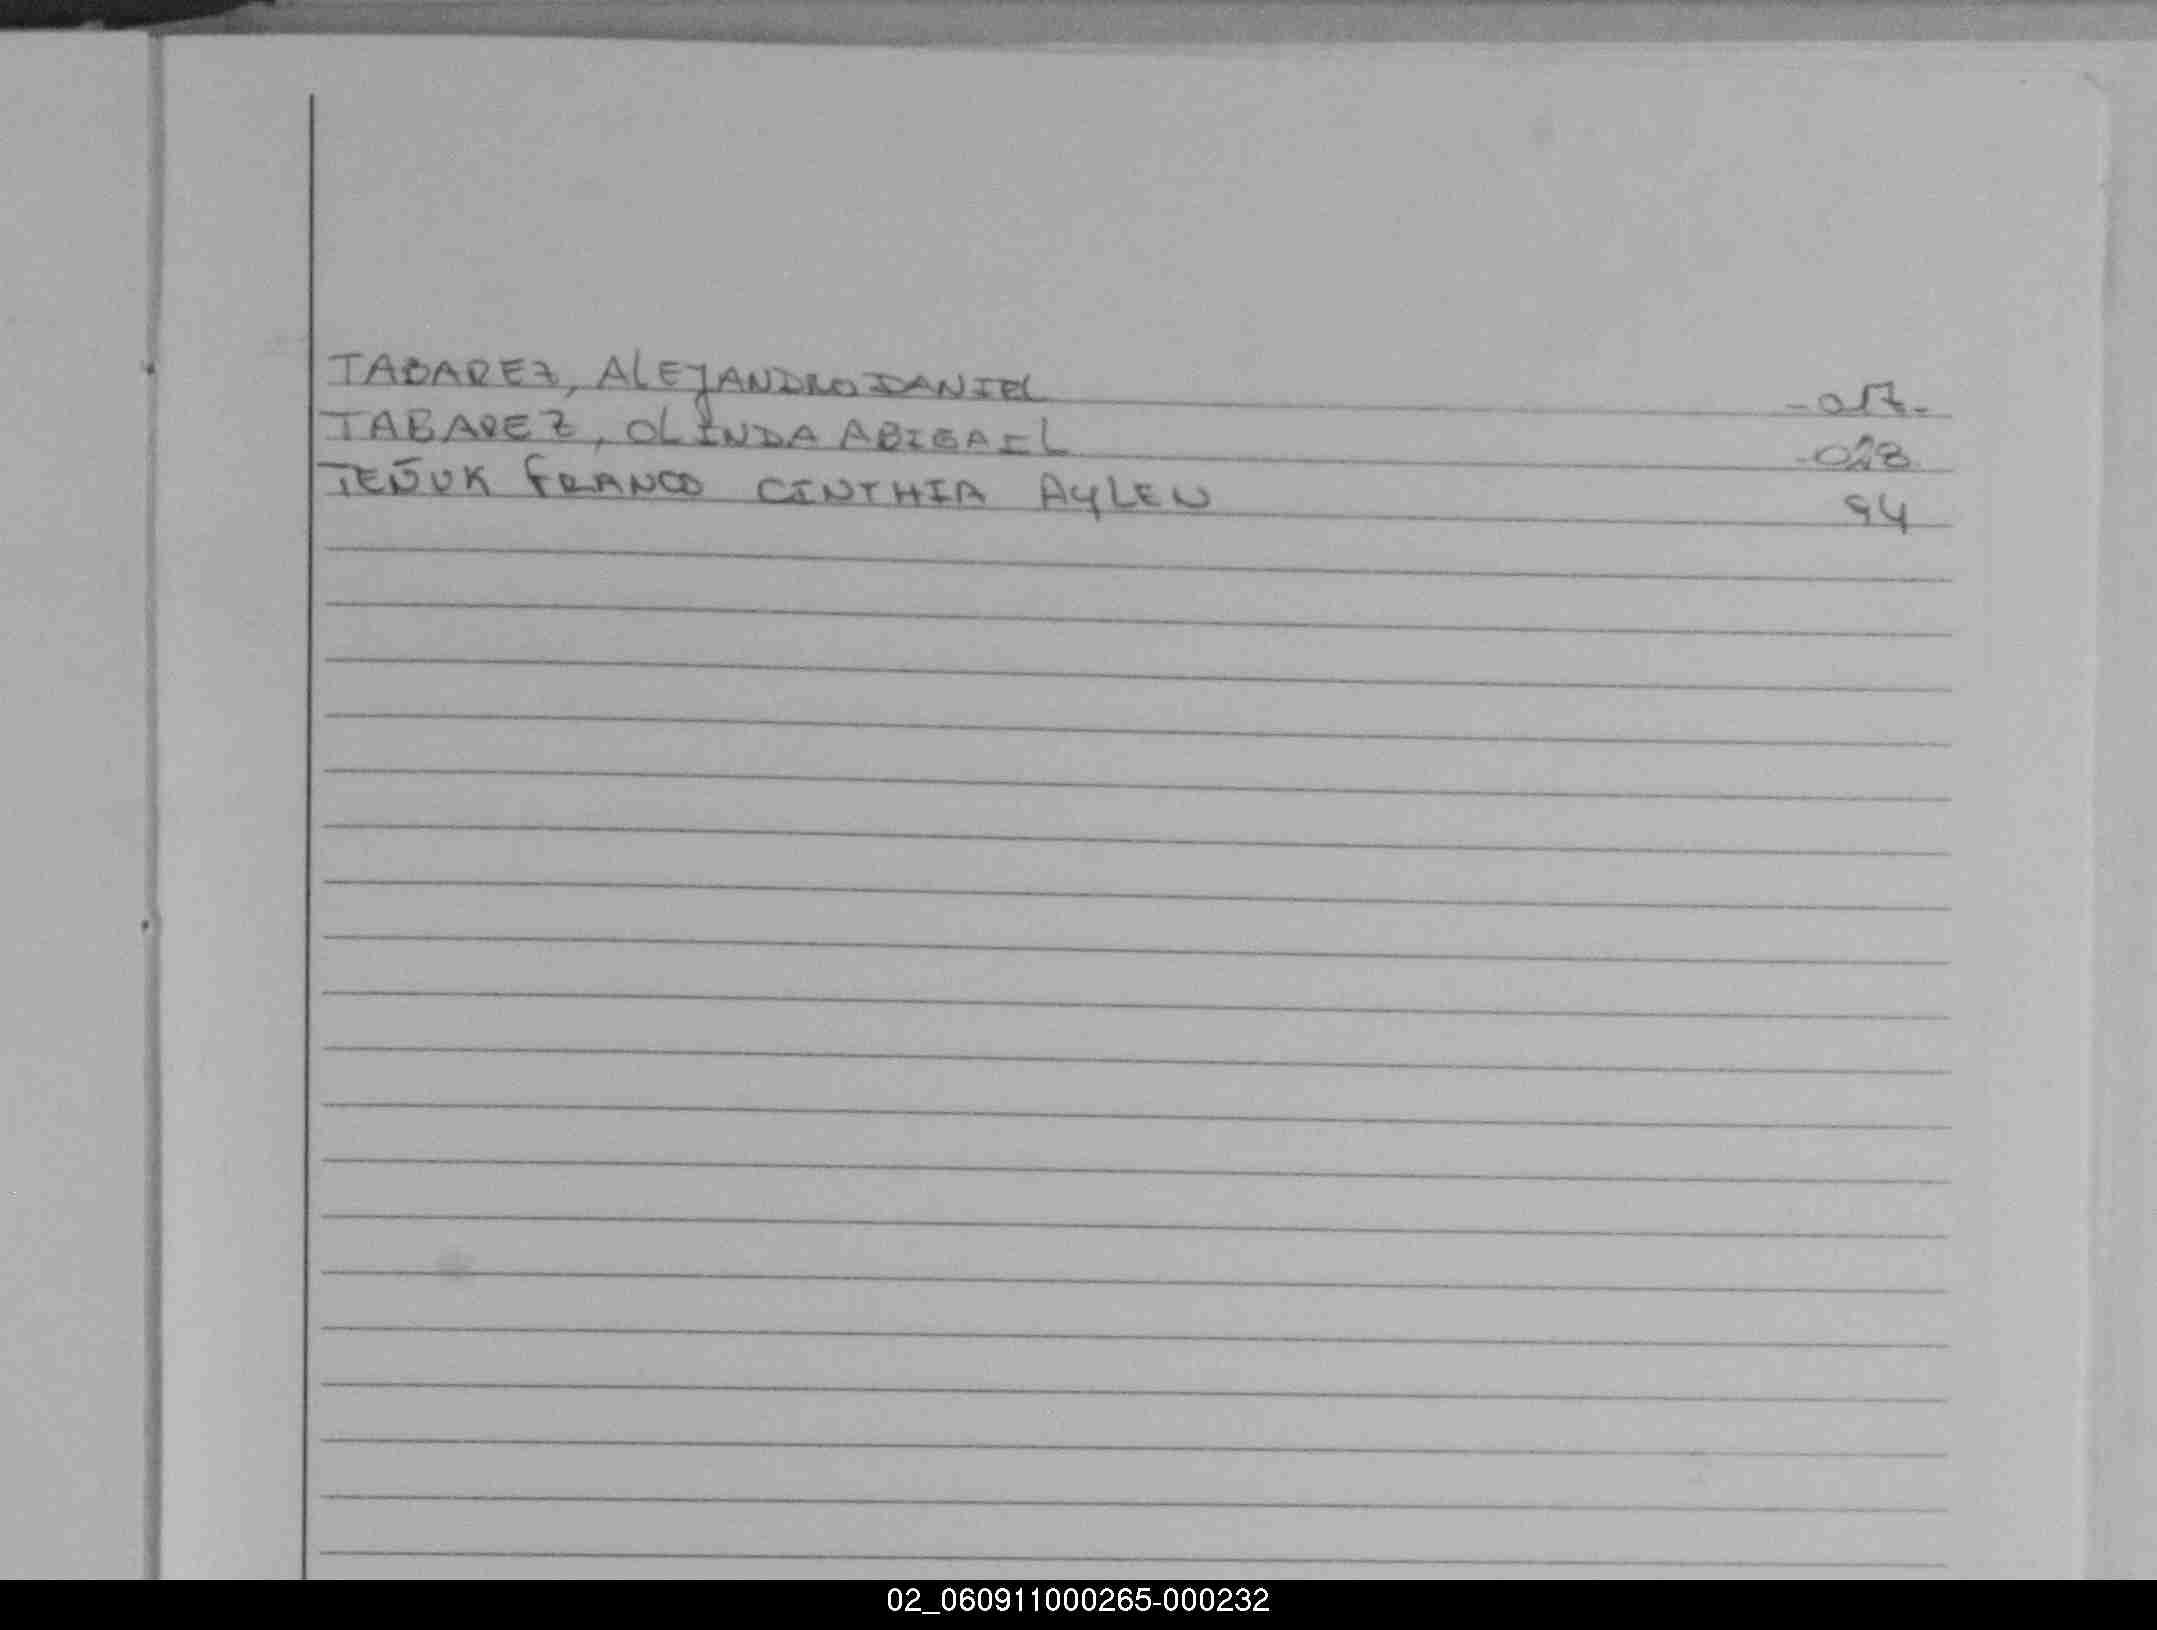 TABAREZ, ALEJANDRO DANIEL -017-
TABAREZ, OLINDA ABIGAIL -028-
TEÑUK FRANCO CINTHIA AYLEN 94
02_060911000265-000232